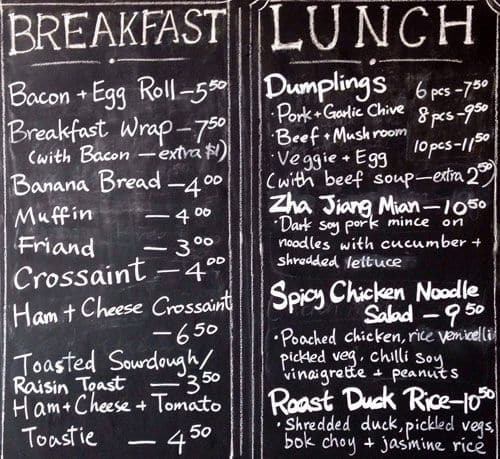 BREAKFAST
Bacon + Egg Roll — 5.50
Breakfast Wrap — 7.50
(with Bacon — extra $1)
Banana Bread — 4.00
Muffin — 4.00
Friand — 3.00
Crossaint — 4.00
Ham + Cheese Crossaint
— 6.50
Toasted Sourdough/
Raisin Toast — 3.50
Ham + Cheese + Tomato
Toastie — 4.50
LUNCH
Dumplings 6 pcs - 7.50
· Pork + Garlic Chive 8 pcs - 9.50
· Beef + Mushroom
10 pcs - 11.50
· Veggie + Egg
(with beef soup — extra 2.50)
Zha Jiang Mian — 10.50
· Dark soy pork mince on
noodles with cucumber +
shredded lettuce
Spicy Chicken Noodle
Salad — 9.50
· Poached chicken, rice vermicelli
pickled veg, chilli soy
vinaigrette + peanuts
Roast Duck Rice — 10.50
· Shredded duck, pickled vegs,
bok choy + jasmine rice